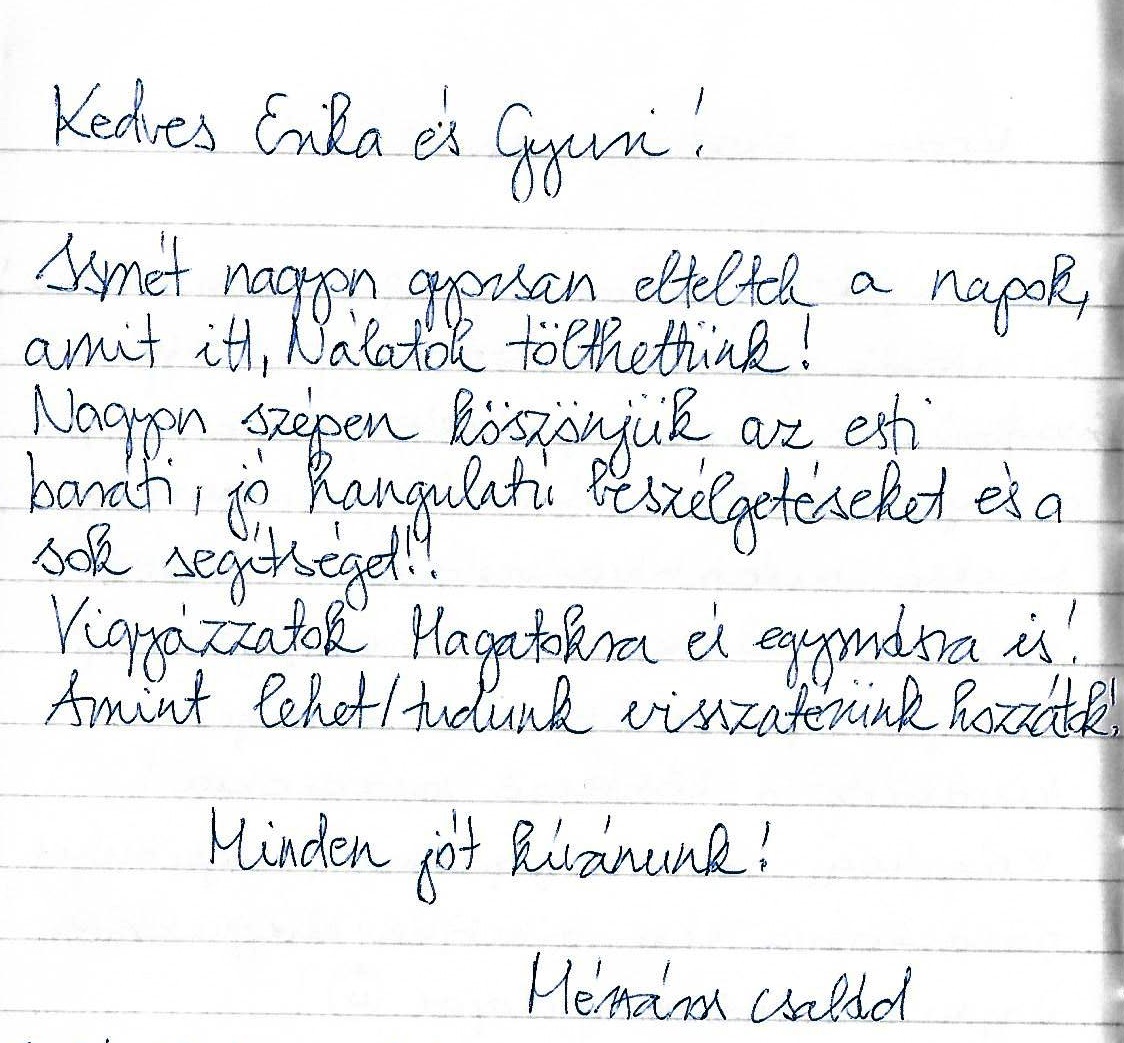 Kedves Erika és Gyuri!
Ismét nagyon gyorsan elteltek a napok,
amit itt, Nálatok tölthettünk!
Nagyon szépen köszönjük az esti
baráti, jó hangulatú beszélgetéseket és a
sok segítséget!!
Vigyázzatok Magatokra és egymásra is!
Amint lehet/tudunk visszatérünk hozzátok!
Minden jót kívánunk!
család